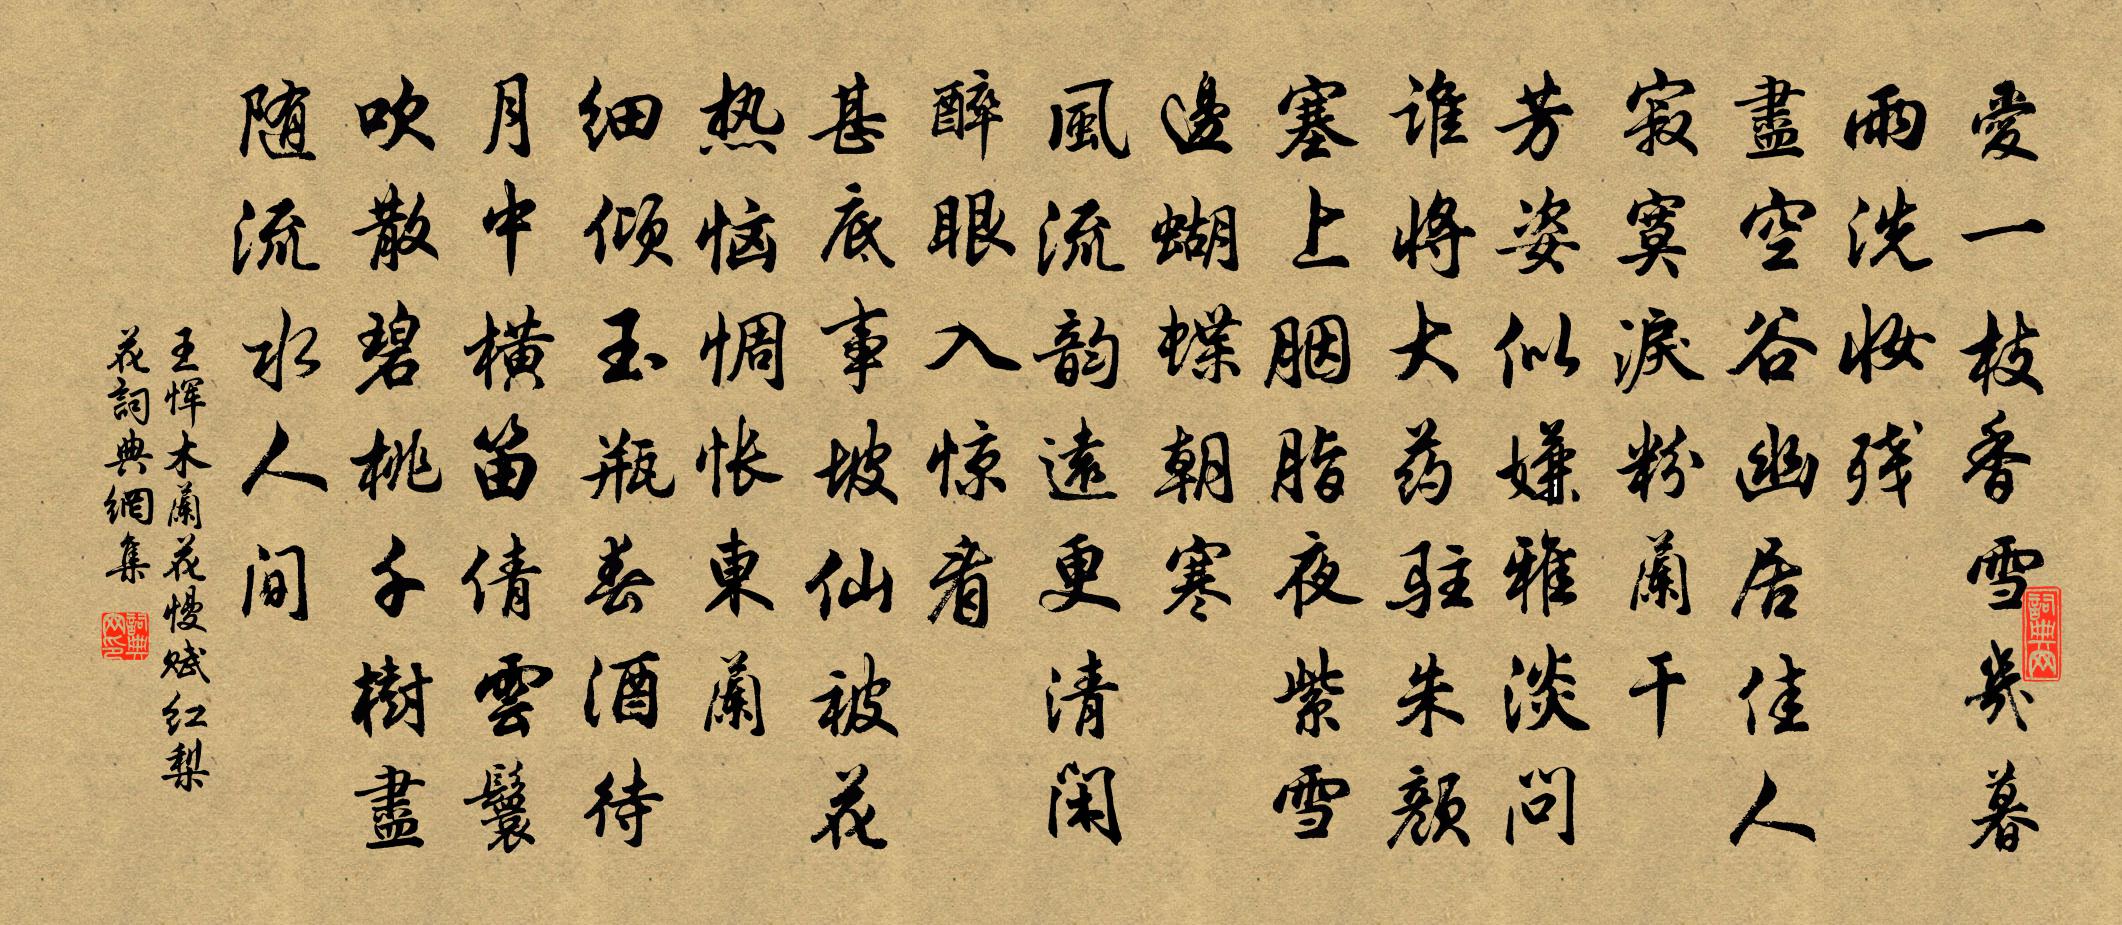 愛一枝香雪幾暮
雨洗妆残
盡空谷幽居佳人
寂寞淚粉蘭干
芳姿似嫌雅淡问
谁将大药駐朱颜
塞上胭脂夜紫雪
邊蝴蝶朝寒
風流韵遠更清闲
醉眼入惊看
甚底事坡仙被花
热恼惆怅東蘭
细倾玉瓶春酒待
月中横笛倩雲鬟
吹散碧桃千樹盡
随流水人间
王恽木蘭花慢赋红梨
花詞典網集
詞典网
詞典网印